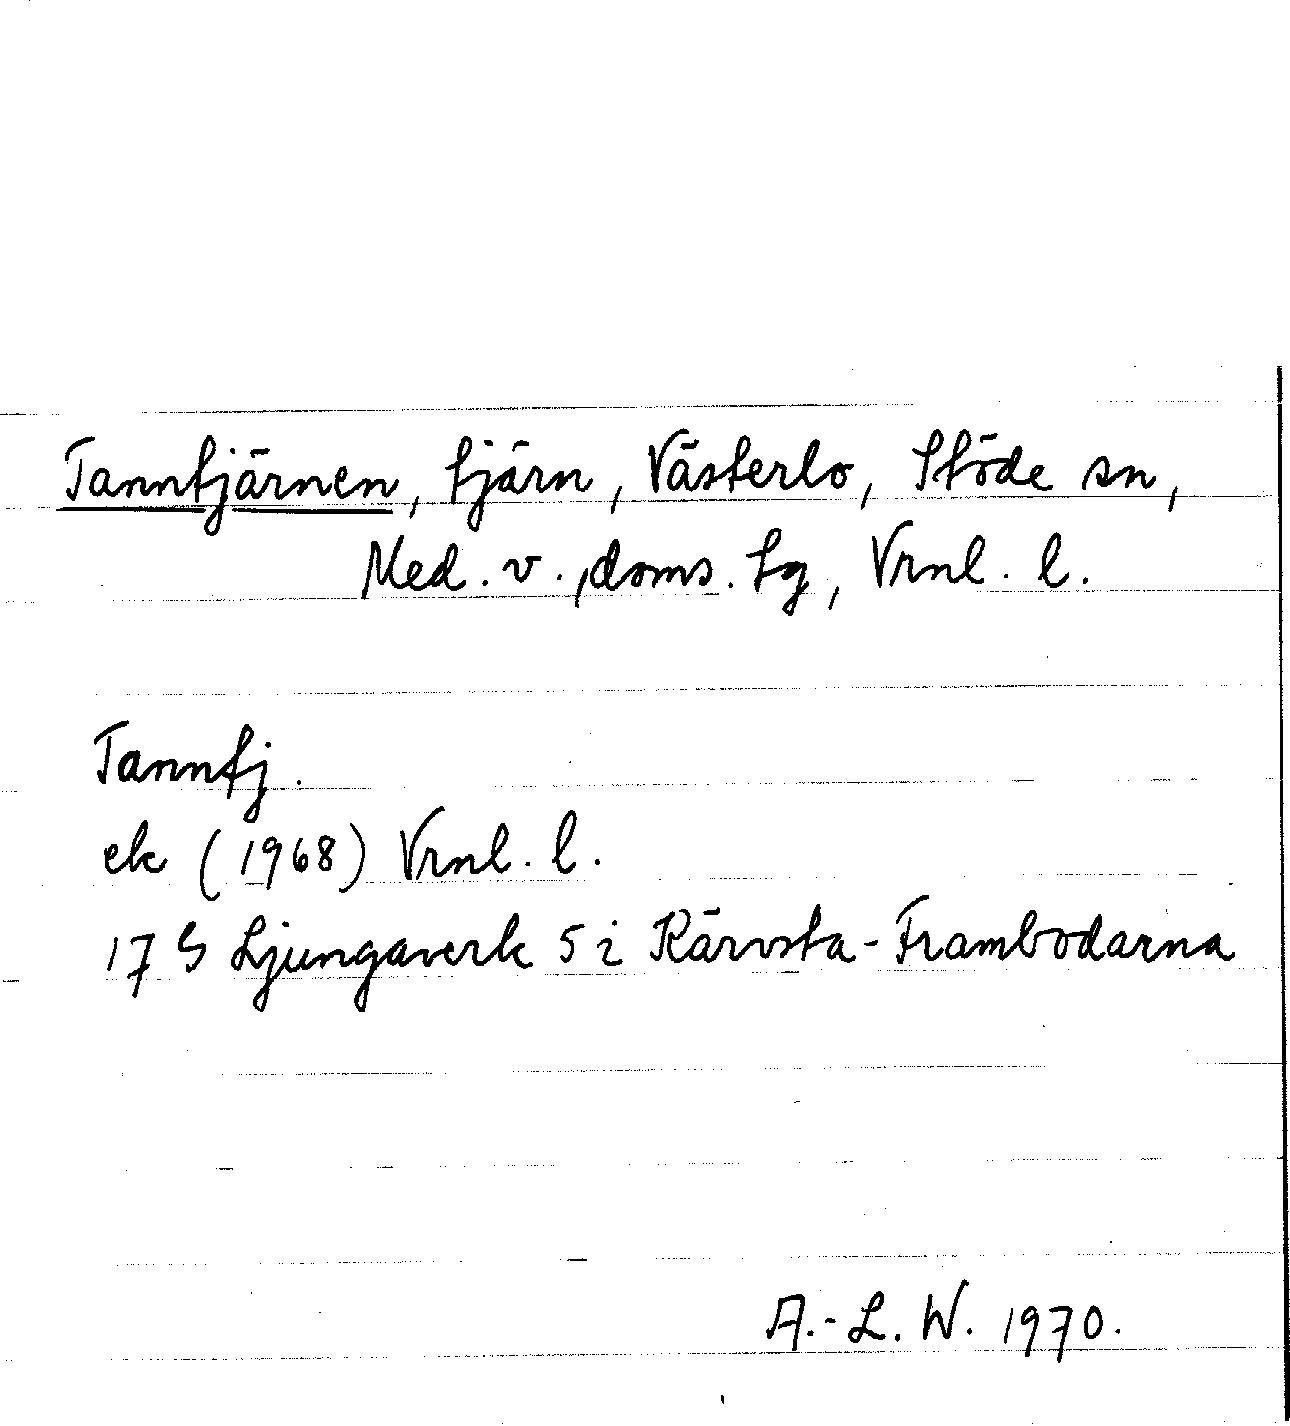 Tanntjärnen, tjärn, Västerlo, Stöde sn,
Med. v., doms. tg, Vrnl. l.
Tanntj.
ek (1968) Vrnl. l.
17 G Ljungaverk 5 i Kärvsta-Frambodarna
A.-L. W. 1970.